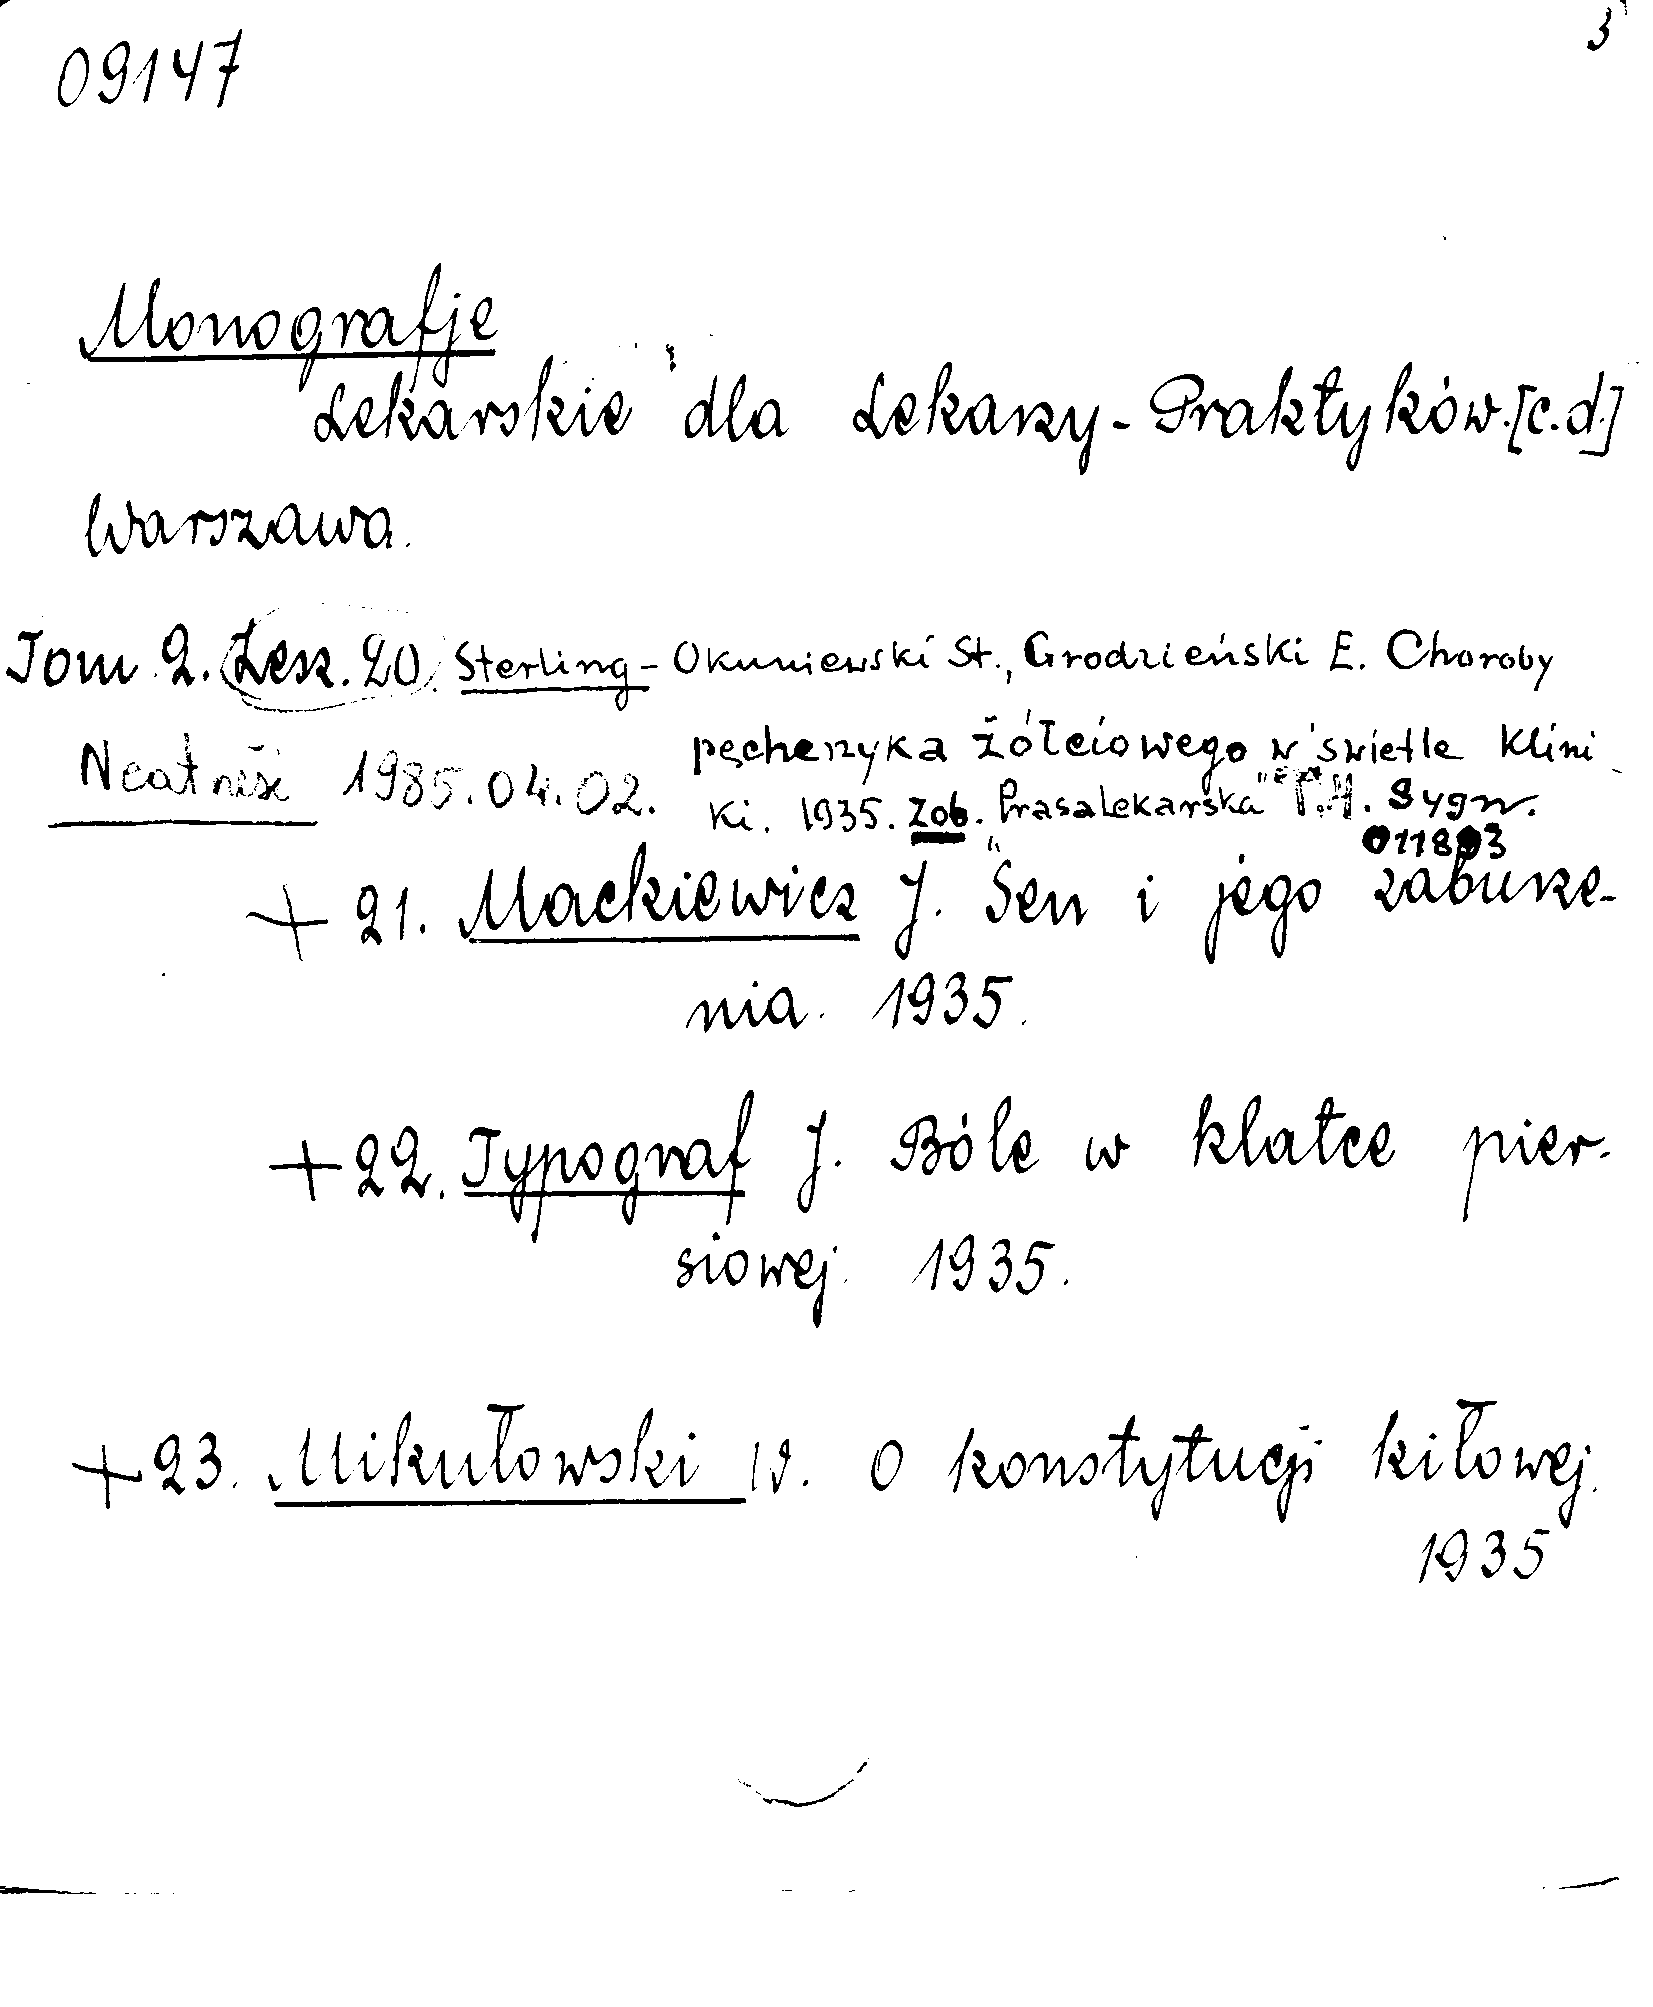 3
09147
Monografje
Lekarskie dla Lekarzy-Praktyków.[c.d.]
Warszawa.
Tom 2. Zesz. 20. Sterling-Okuniewski St., Grodzieński E. Choroby
pęcherzyka żółciowego w świetle klini
1985.04.02. ki. 1935. Zob. "Prasa Lekarska" Sygn.
+ 21. Mackiewicz J. Sen i jego zaburze-
nia. 1935.
+ 22. Typograf J. Bóle w klatce pier-
siowej. 1935.
+ 23. Mikułowski W. O konstytucji kiłowej.
1935